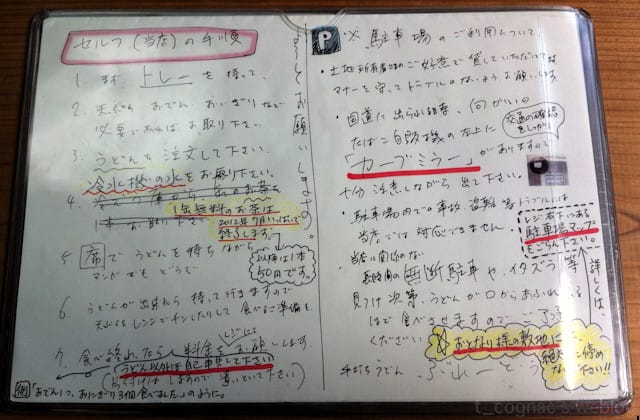 セルフ(当店)の手順
1. まず、トレーを持って、
2. 天ぷら、おでん、おにぎりなど
必要であればお取り下さい。
3. うどんを注文して下さい。
冷水機の水をお取り下さい。
4.
1缶無料のお茶は
2012年7月いっぱいで
終了します。
以降は1本
50円です。
5. 席でうどんを待ちながら
マンガでもどうぞ
6. うどんが出来たら持って行きますので
天ぷらをレンジでチンしたりして食べるご準備を。
7. 食べ終わったら料金をお願いします。
レジにて
うどん以外は自己申告して下さい
例「おでん1つ、おにぎり3個食べました」のように。
お願いします。
P ※駐車場のご利用について
・土地所有者様のご好意で貸していただいてます
マナーを守ってトラブルのないようお願いします。
・国道に出られる時、向かいの
たばこ自販機の左上に
交通の確認
をしっかり
「カーブミラー」がありますので
十分注意しながら出て下さい。
・駐車場内での事故、盗難等トラブルには
当店では対応できません。
レジ右下にある
駐車場マップを
ごらん下さい。
詳しくは、
・当店に関係のない
長時間の無断駐車や、イタズラ等
見つけ次第、うどんが口からあふれる
ほど食べさせますのでご了承
ください。
※おとなり様の敷地に
絶対に停め
ない下さい!!
手打うどん
t_cognac's weblog